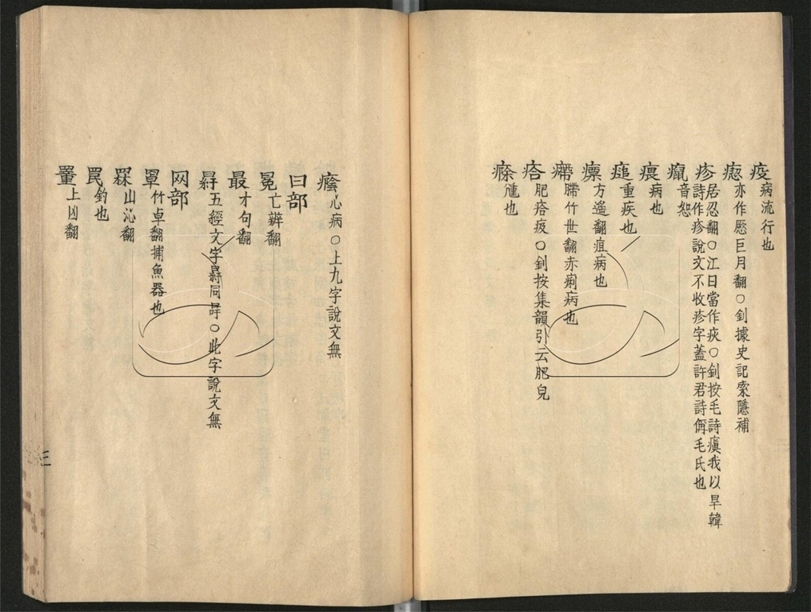 疫病流行也
瘛亦作瘱巨月翻○釗據史記索隱補
疹居忍翻○江日當作疢○釗按毛詩瘨我以旱韓
詩作疹說文不收疹字葢許君詩偁毛氏也
音恕
痕病也
重疾也
瘭方遥翻疽病也
㿃臈竹世翻赤痢病也
㾑肥㾑疲○釗按集韻引云肥皃
瘵尰也
心病○上九字說文無
冃部
冕亡辨翻
最才句翻
五經文字㝵同㝵○此字說文無
网部
罩竹卓翻捕魚器也
罧山沁翻
罠釣也
上凶翻
三